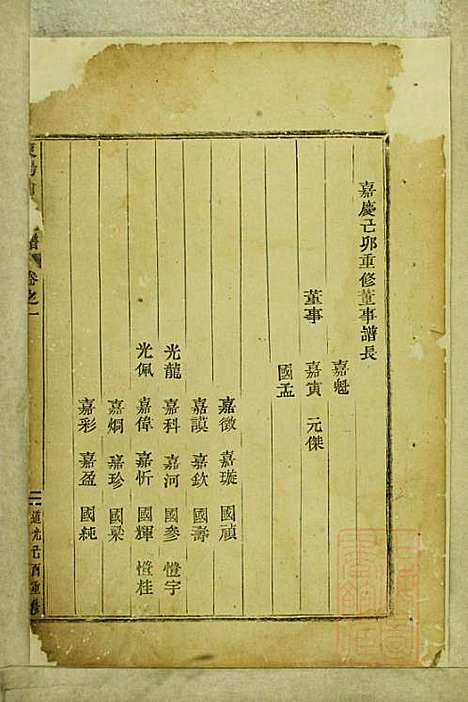 嘉慶己卯重修董事譜長
嘉魁
董事 嘉寅 元傑
國孟
嘉徵 嘉璇 國禎
嘉謨 嘉欽 國壽
光龍 嘉科 嘉河 國參 憕宇
光佩 嘉偉 嘉忻 國輝 憕桂
嘉炯 嘉珍 國梁
嘉彩 嘉盈 國純
譜 卷之一
道光己酉重修